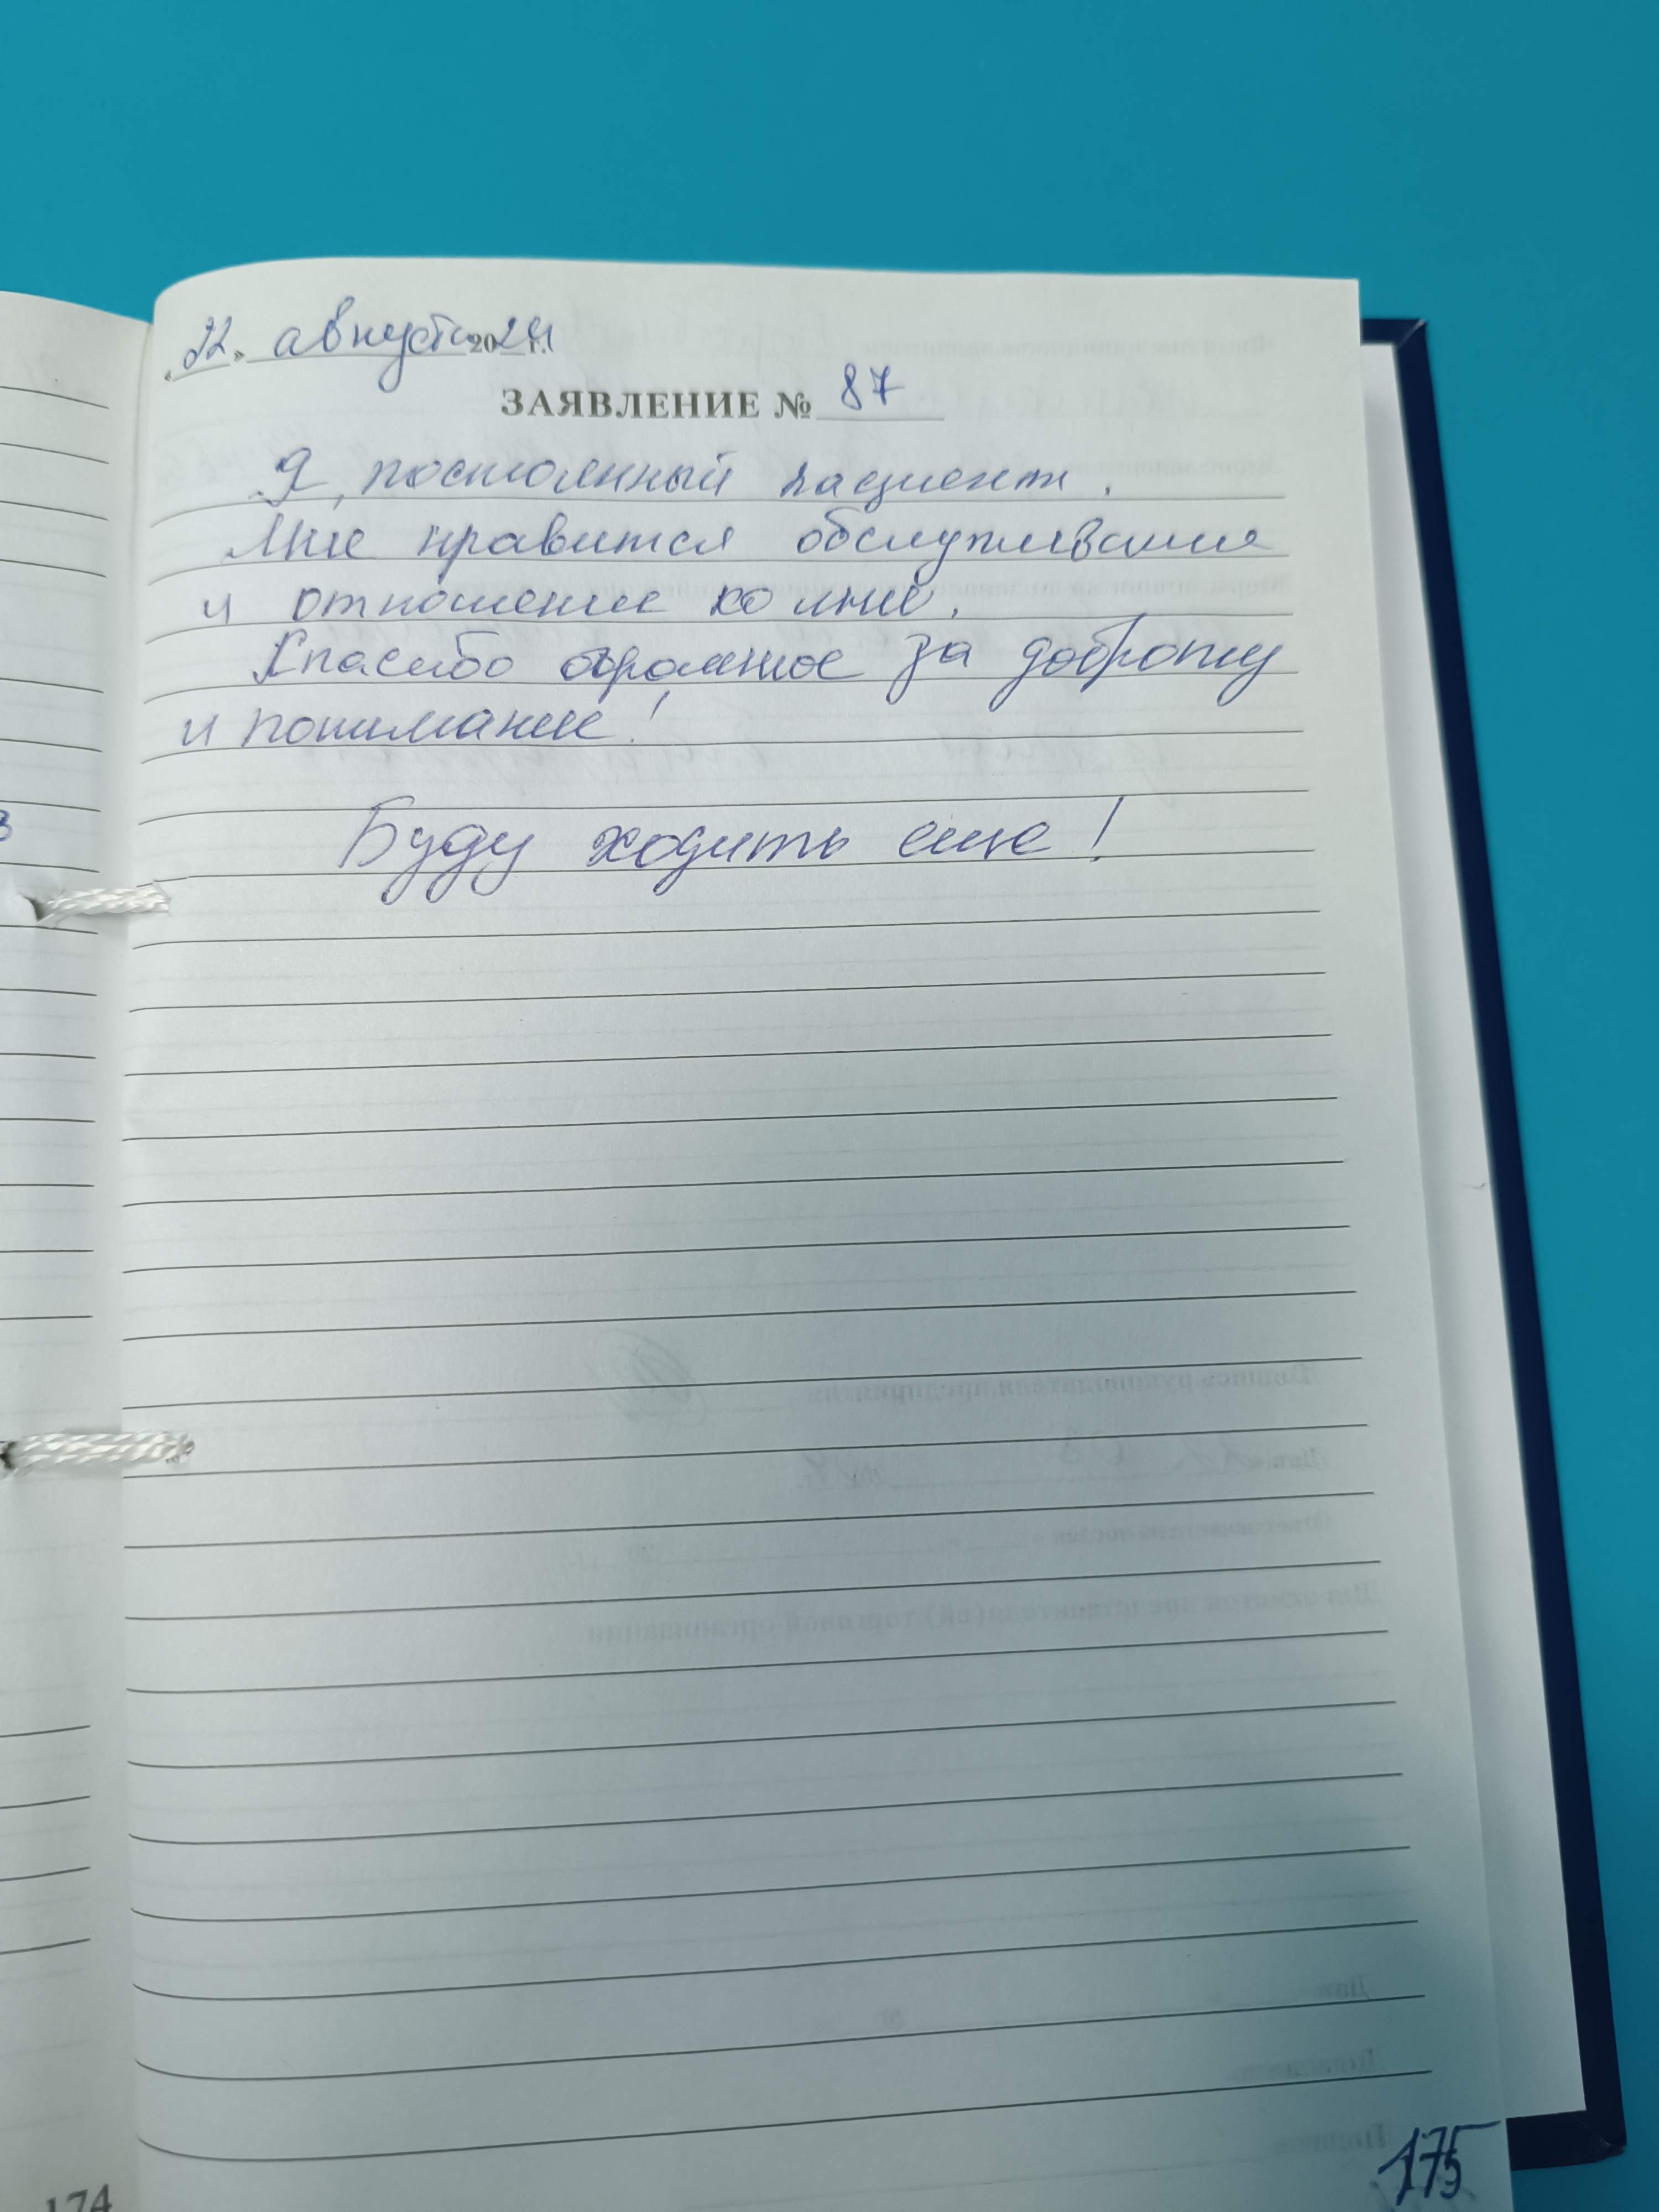 «22» августа 2024 г.
ЗАЯВЛЕНИЕ № 87
Я, постоянный пациент.
Мне нравится обслуживание
и отношение ко мне.
Спасибо огромное за доброту
и понимание!
Буду ходить еще!
174
175